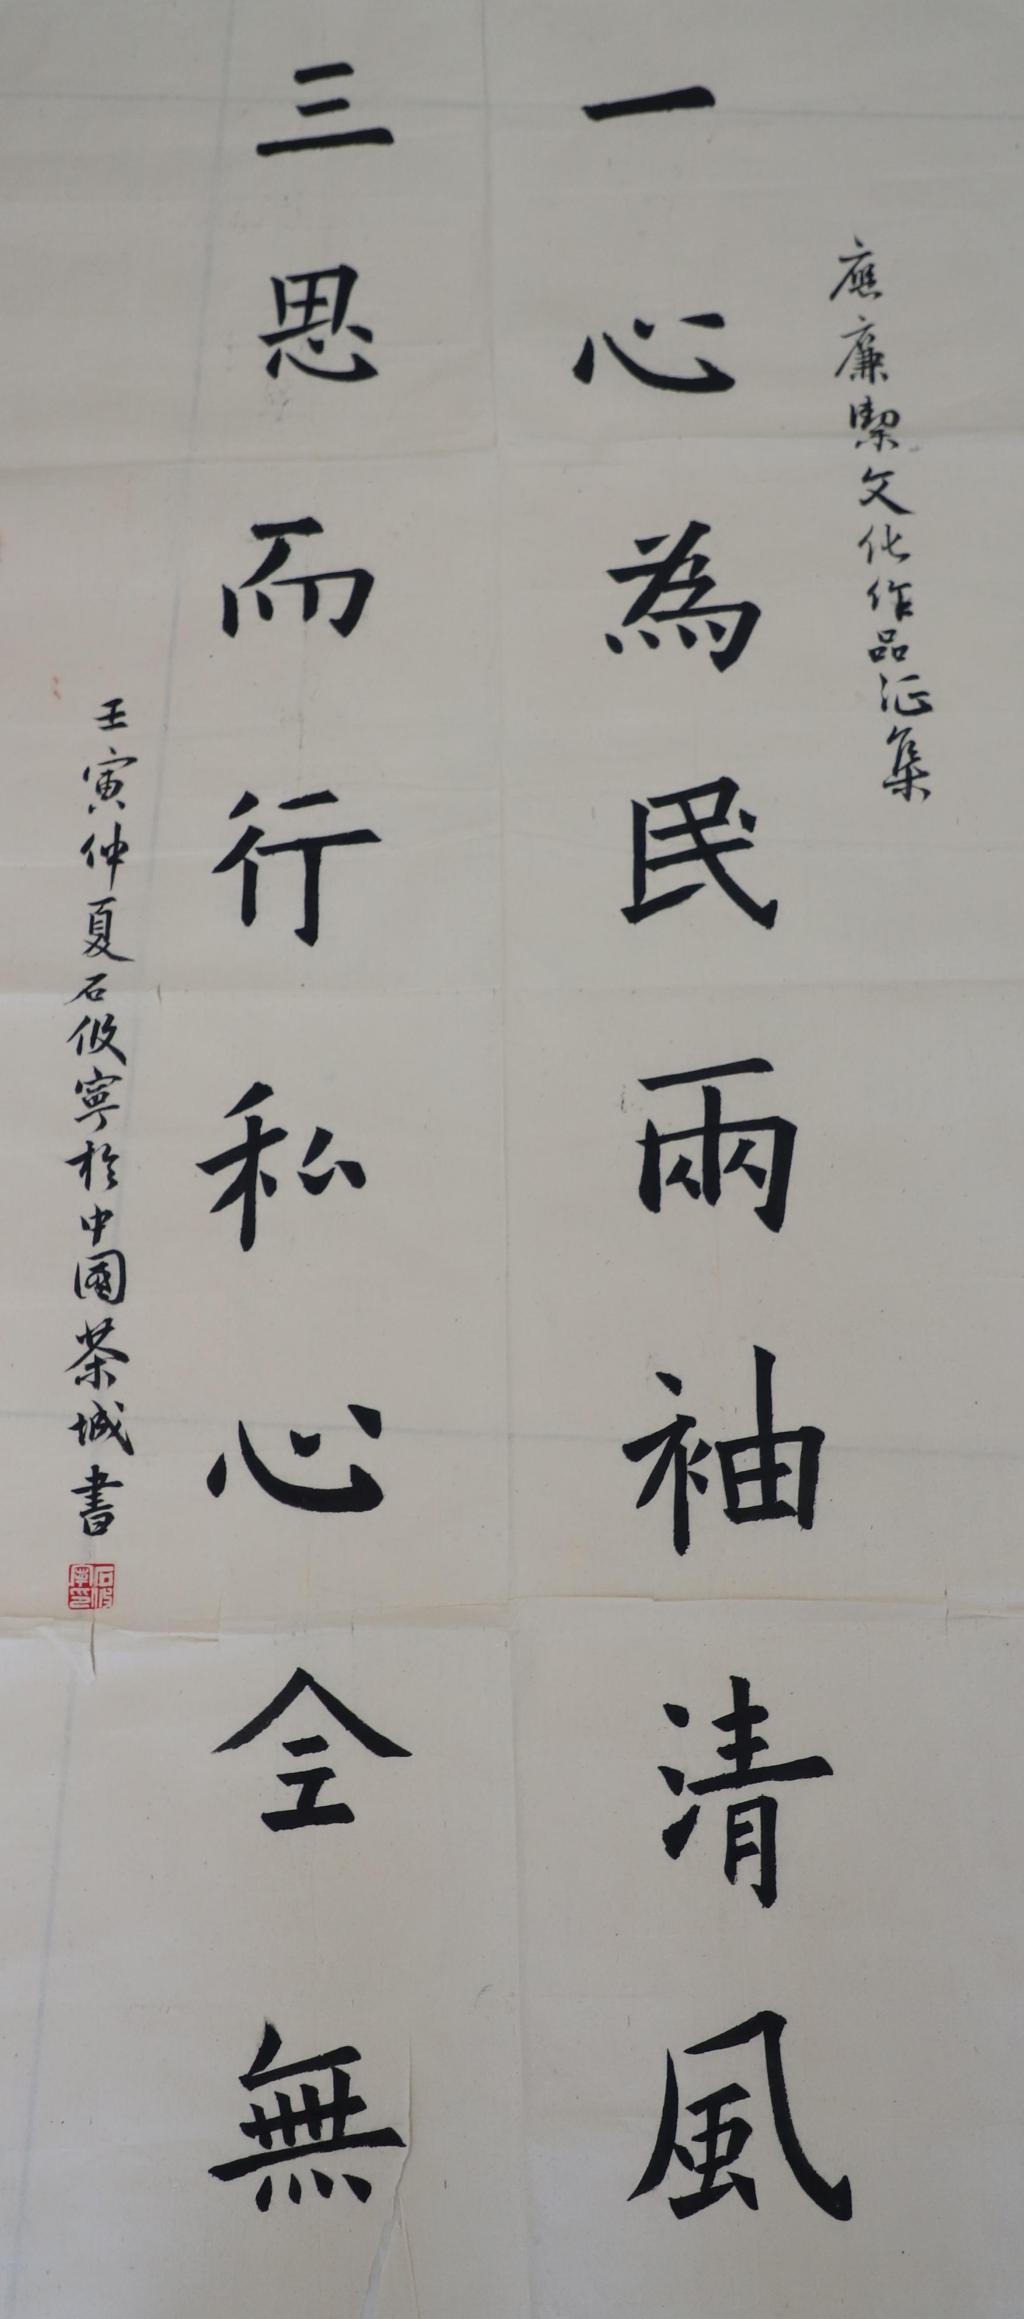 應廉潔文化作品征集
一心為民兩袖清風
三思而行私心仝無
壬寅仲夏石攸寧於中國茶城書
石攸寧印